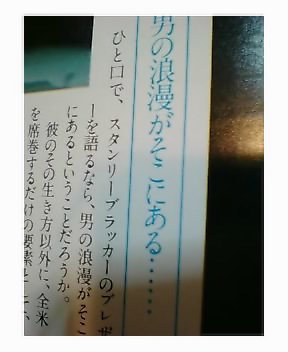 男の浪漫がそこにある……
ひと口で、スタンリーブラッカーのブレザ
ーを語るなら、男の浪漫がそこ
にあるということだろうか。
彼のその生き方以外に、全米
を席巻するだけの要素と